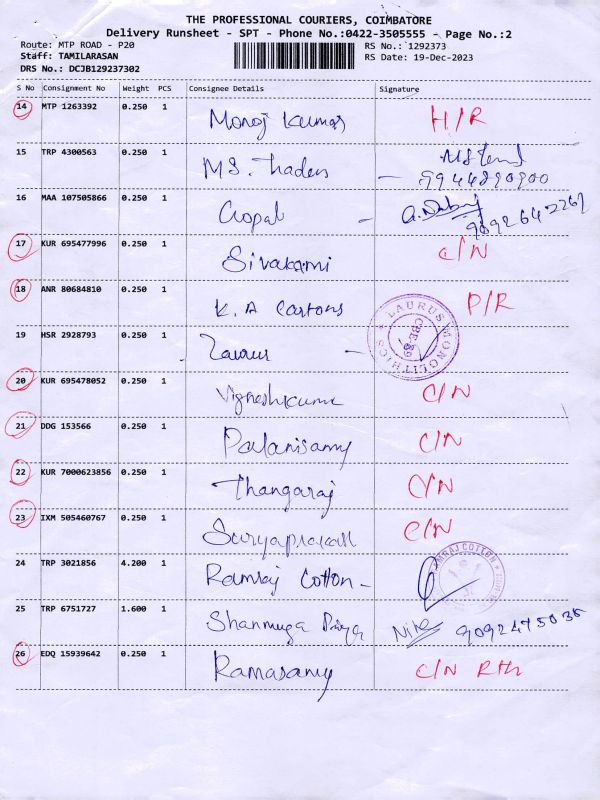 THE PROFESSIONAL COURIERS, COIMBATORE
Delivery Runsheet - SPT - Phone No.:0422-3505555 - Page No.:2
Route: MTP ROAD - P20 RS No.: 1292373
Staff: TAMILARASAN RS Date: 19-Dec-2023
DRS No.: DCJB129237302
S No Consignment No Weight PCS Consignee Details Signature
14 MTP 1263392 0.250 1 Manoj Kumar H/R
15 TRP 4300563 0.250 1 M.S. Traders
- 9944890900
16 MAA 107505866 0.250 1 Gopal -
17 KUR 695477996 0.250 1 Sivakami C/N
18 ANR 80684810 0.250 1 K.A Cartons P/R
19 HSR 2928793 0.250 1 - LAURUS MONOLITHICS CBE-89
20 KUR 695478052 0.250 1 Vigneshkumar C/N
21 DDG 153566 0.250 1 Palanisamy C/N
22 KUR 7000623856 0.250 1 Thangaraj C/N
23 IXM 505460767 0.250 1 Suryaprakash C/N
24 TRP 3021856 4.200 1 Ramraj Cotton - RAMRAJ COTTON
25 TRP 6751727 1.600 1 Shanmuga Priya 9092475035
26 EDQ 15939642 0.250 1 Ramasamy C/N Rtn